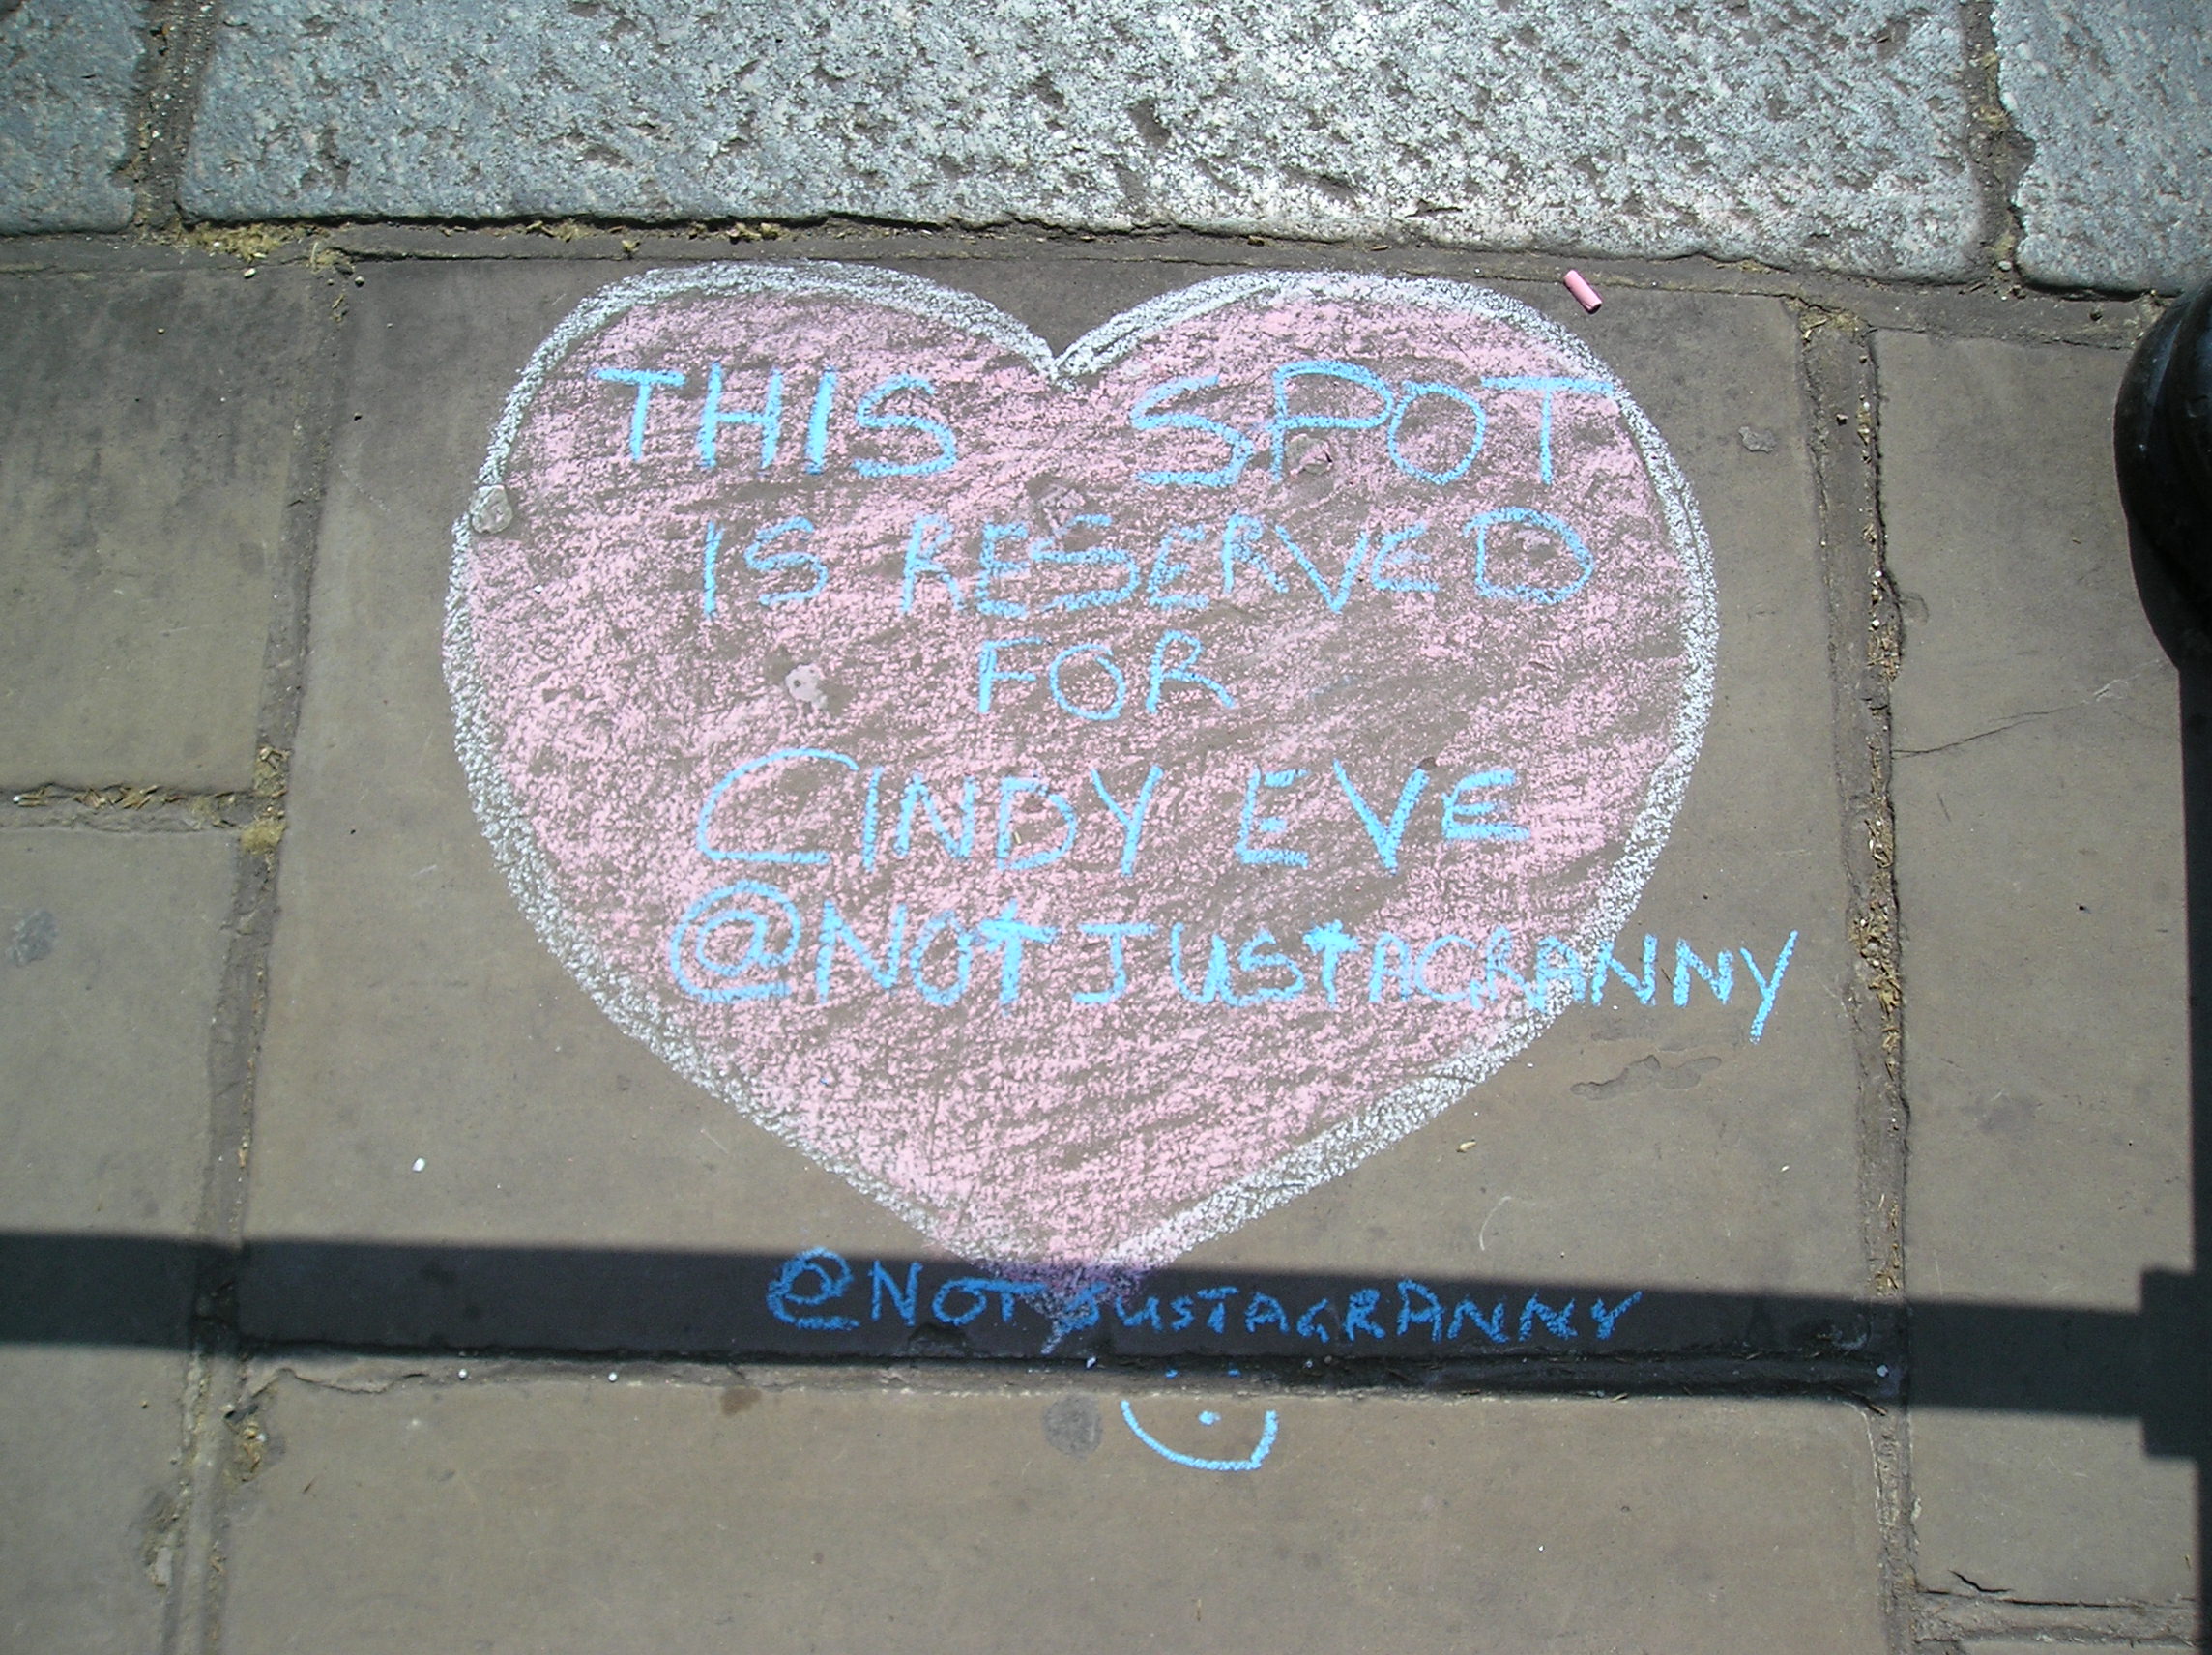 THIS SPOT
IS RESERVED
FOR
CINDY EVE
@NOTJUSTAGRANNY
@NOTJUSTAGRANNY